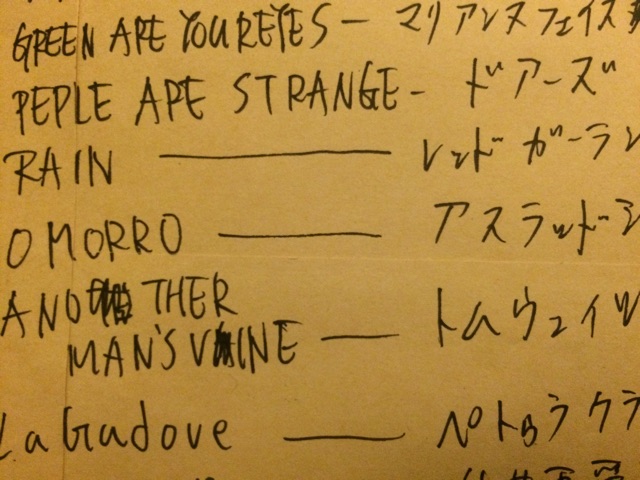 GREEN ARE YOUR EYES — マリアンヌフェイス
PEPLE ARE STRANGE - ドアーズ
RAIN — レッドガーラン
OMORRO — アストラッド
ANOTHER
MAN'S VINE — トムウェイツ
La Gadove — ペトゥラクラ